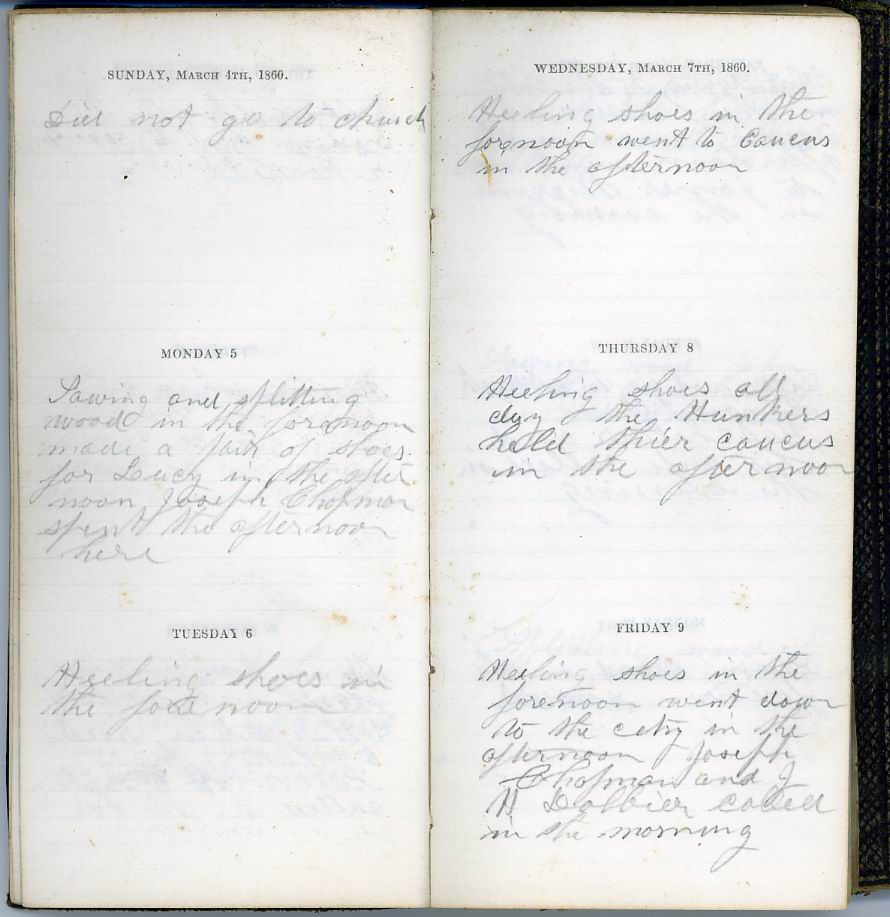 SUNDAY, MARCH 4TH, 1860.
Did not go to church
MONDAY 5
Sawing and splitting
wood in the forenoon
made a pair of shoes
for Lucy in the after
noon Joseph Chapman
spent the afternoon
here
TUESDAY 6
Heeling shoes in
the fore noon
WEDNESDAY, MARCH 7TH, 1860.
Heeling shoes in the
forenoon went to Caucus
in the afternoon
THURSDAY 8
Heeling shoes all
day the Hunkers
held thier caucus
in the afternoon
FRIDAY 9
Heeling shoes in the
forenoon went down
to the city in the
afternoon Joseph
Chapman and J
H Dolbier called
in the morning